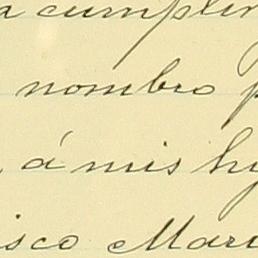 a cumplim
nombro p
á mis hi
isco Mari